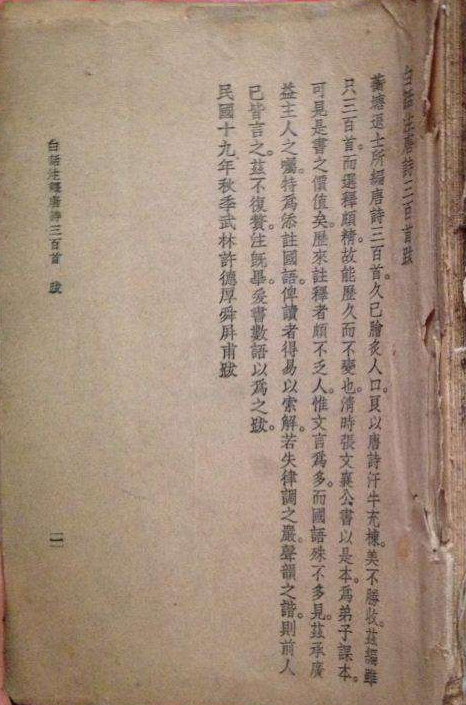 白話注唐詩三百首跋
蘅塘退士所編唐詩三百首。久已膾炙人口。良以唐詩汗牛充棟。美不勝收。茲編雖
只三百首。而選釋頗精。故能歷久而不變也。清時張文襄公書以是本。爲弟子課本。
可見是書之價值矣。歷來註釋者頗不乏人。惟文言爲多。而國語殊不多見。茲承廣
益主人之囑。特爲添註國語。俾讀者得易以索解。若失律調之嚴。聲韻之諧。則前人
已皆言之。茲不復贅。注既畢。爰書數語以爲之跋。
民國十九年秋季武林許德厚舜屏甫跋
白話注釋唐詩三百首 跋
一